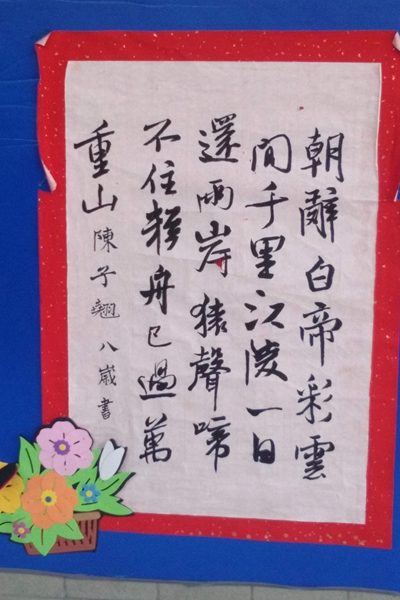 朝辭白帝彩雲
間千里江陵一日
還兩岸猿聲啼
不住輕舟已過萬
重山 陳子翹八歲書